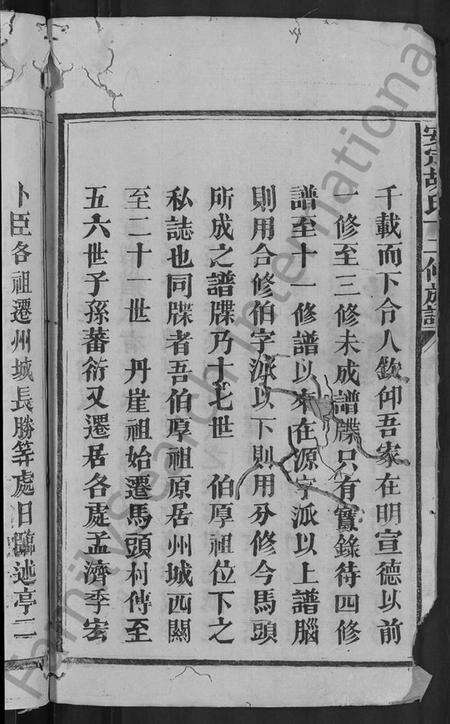 安定胡氏十二修族譜
千載而下令人欽仰吾家在明宣德以前
一修至三修未成譜牒只有實錄待四修
譜至十一修譜以來在源字派以上譜腦
則用合修伯字派以下則用分修今馬頭
所成之譜牒乃十七世 伯厚祖位下之
私誌也同牒者吾伯厚祖原居州城西關
至二十一世 丹崖祖始遷馬頭村傳至
五六世子孫蕃衍又遷居各處孟濟季宏
卜臣各祖遷州城長勝等處日臨述亭二
FamilySearch International